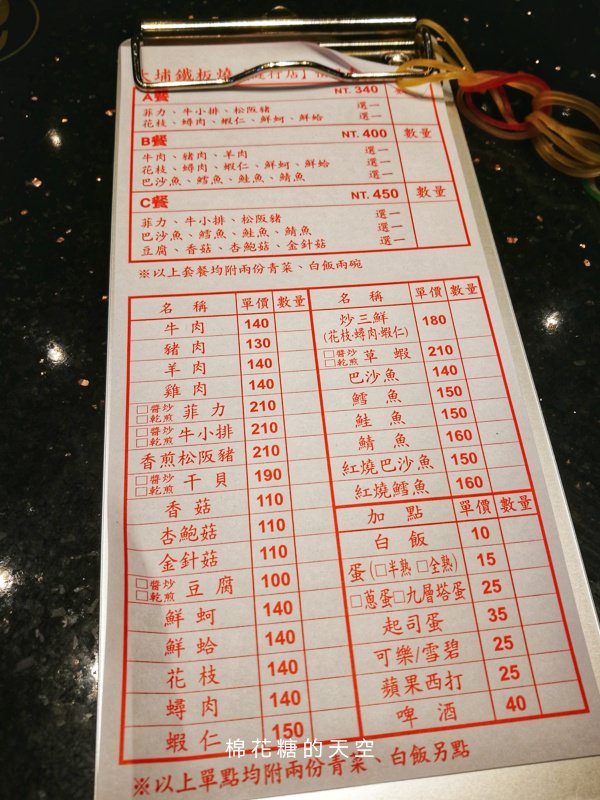 埔鐵板燒
A餐 NT. 340
菲力、牛小排、松阪豬 選一
花枝、蟳肉、蝦仁、鮮蚵、鮮蛤 選一
B餐 NT. 400 數量
牛肉、豬肉、羊肉 選一
花枝、蟳肉、蝦仁、鮮蚵、鮮蛤 選一
巴沙魚、鱈魚、鮭魚、鯖魚 選一
C餐 NT. 450 數量
菲力、牛小排、松阪豬 選一
巴沙魚、鱈魚、鮭魚、鯖魚 選一
豆腐、香菇、杏鮑菇、金針菇 選一
※以上套餐均附兩份青菜、白飯兩碗
名稱 單價 數量
牛肉 140
豬肉 130
羊肉 140
雞肉 140
□醬炒 □乾煎 菲力 210
□醬炒 □乾煎 牛小排 210
香煎松阪豬 210
□醬炒 □乾煎 干貝 190
香菇 110
杏鮑菇 110
金針菇 110
□醬炒 □乾煎 豆腐 100
鮮蚵 140
鮮蛤 140
花枝 140
蟳肉 140
蝦仁 150
名稱 單價 數量
炒三鮮 180
(花枝·蟳肉·蝦仁)
□醬炒 □乾煎 草蝦 210
巴沙魚 140
鱈魚 150
鮭魚 150
鯖魚 160
紅燒巴沙魚 150
紅燒鱈魚 160
加點 單價 數量
白飯 10
蛋(□半熟 □全熟) 15
□蔥蛋□九層塔蛋 25
起司蛋 35
可樂/雪碧 25
蘋果西打 25
啤酒 40
※以上單點均附兩份青菜、白飯另點
棉花糖的天空